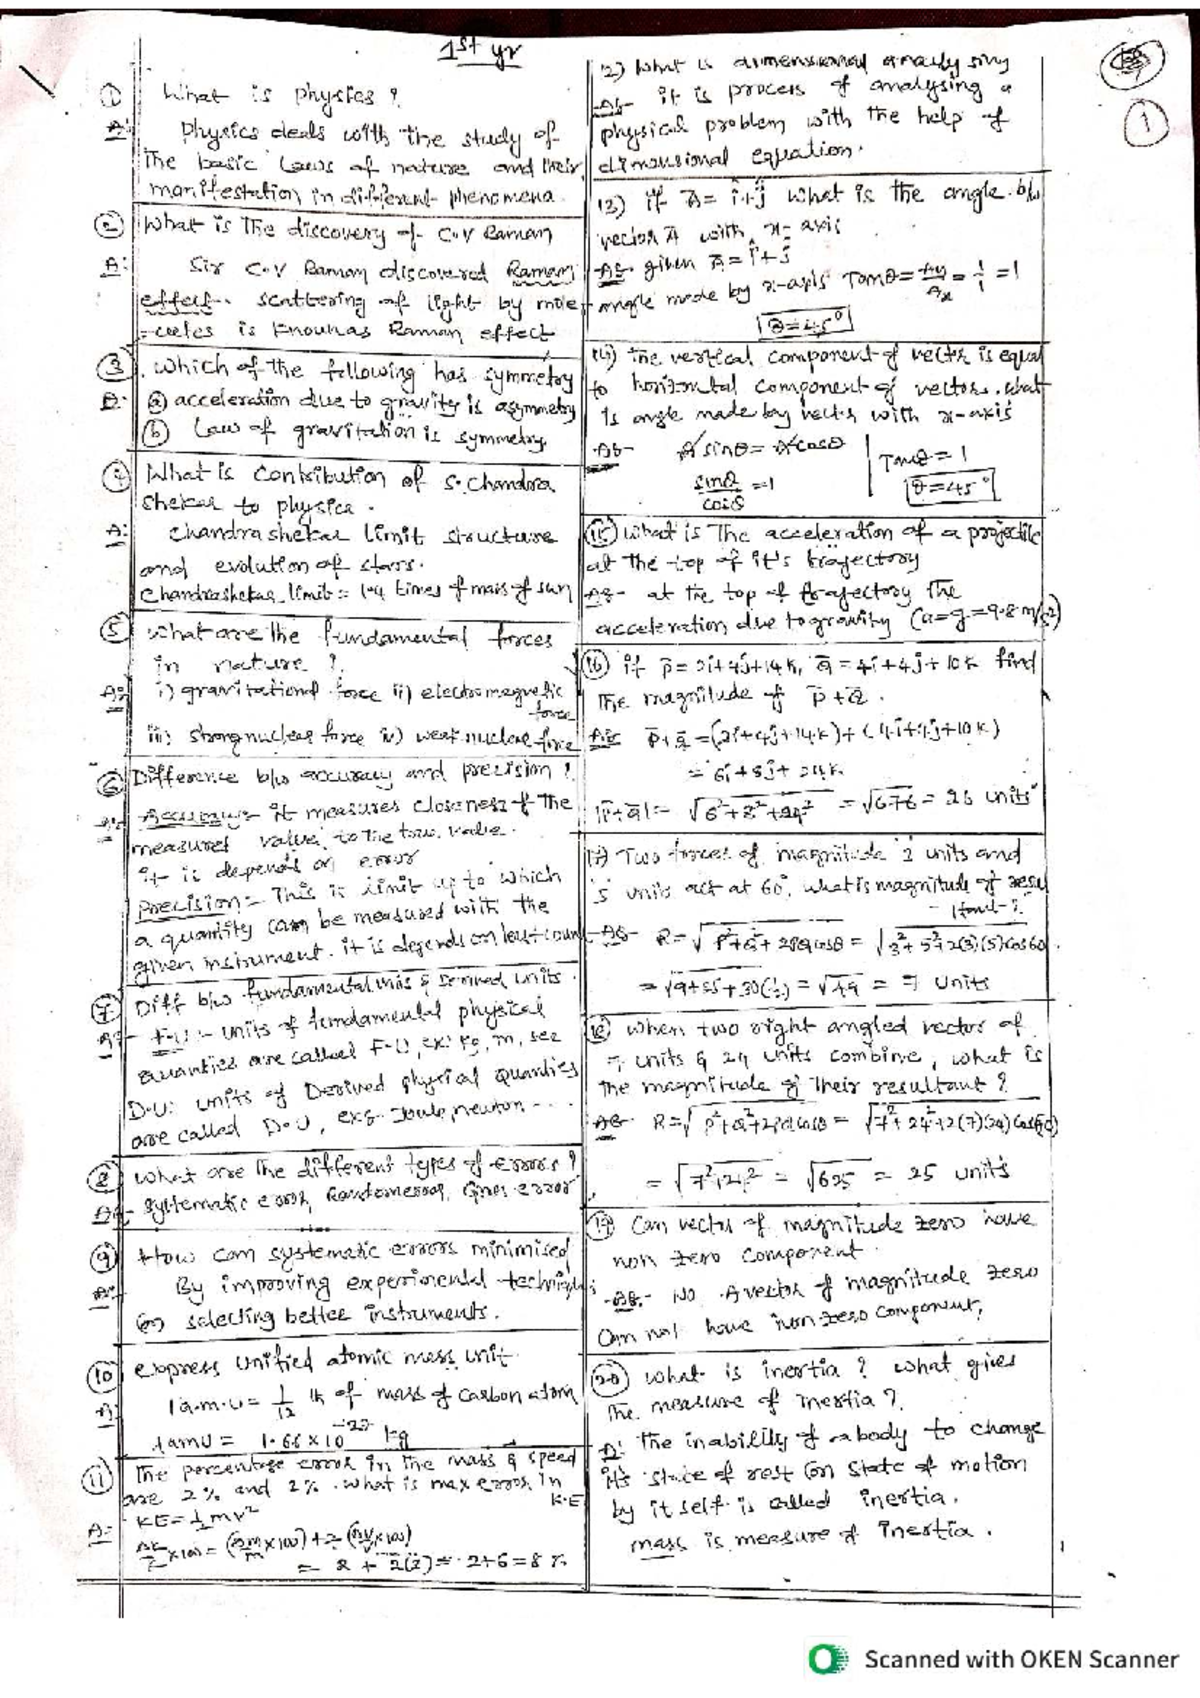 1st yr
① What is physics?
A: Physics deals with the study of
The basic laws of nature and their
manifestation in different phenomena.
② What is The discovery of C.V Raman
A: Sir C.V Raman discovered Raman
effect. Scattering of light by mole
-cules is knownas Raman effect
③ Which of the following has symmetry
A: ⓐ acceleration due to gravity is asymmetry
ⓑ Law of gravitation is symmetry.
④ What is Contribution of S. Chandra
Shekar to physics.
A: Chandrashekar limit structure
and evolution of stars.
Chandrashekar limit = 1.4 times of mass of sun
⑤ What are the fundamental forces
in nature?
A: i) gravitational force ii) electromagnetic
force
iii) strong nuclear force iv) weak nuclear force
⑥ Difference b/w accuracy and precision?
Accuracy:- it measures closeness of The
measured value to the true value.
it is depends on error
Precision:- This is limit up to which
a quantity can be measured with the
given instrument. it is depends on least count
⑦ Diff b/w fundamental units & Derived units.
A:- F.U:- units of fundamental physical
quantities are called F.U, ex: kg, m, sec
D.U: units of Derived physical quantities
are called D.U, exs- Joule, newton ----
⑧ What are The different types of errors?
As- systematic error, Random error, Gross error
⑨ How can systematic errors minimised
A: By improving experimental techniques
(or) selecting better instruments.
⑩ express unified atomic mass unit.
A: 1 a.m.u = 1/12 th of mass of carbon atom
1 amu = 1.66 x 10^-27 kg
⑪ The percentage error in The mass & speed
are 2% and 2%. what is max error in
K.E
KE = 1/2 mv²
A:- ΔK/K x100 = (Δm/m x100) + 2 (Δv/v x100)
= 2 + 2(2) = 2+6 = 8 %
12) What is dimensional analysis
As- it is process of analysing a
physical problem with the help of
dimensional equation.
13) if A̅ = î+ĵ what is the angle b/w
vector A̅ with x- axis
As- given A̅ = i+j
angle made by x-axis Tanθ = Ay/Ax = 1/1 = 1
θ=45°
14) The vertical component of vector is equal
to horizontal component of vectors. what
is angle made by vector with x-axis
As- A sinθ = A cosθ
sinθ/cosθ = 1
Tanθ = 1
θ=45°
⑮ What is The acceleration of a projectile
at the top of it's trajectory
As- at the top of trajectory The
acceleration due to gravity (a=g=9.8 m/s²)
⑯ if P̅ = 2i+4j+14k, Q̅ = 4i+4j+10k find
The magnitude of P̅+Q̅.
As P̅+Q̅ = (2i+4j+14k)+(4i+4j+10k)
= 6i+8j+24k
|P̅+Q̅| = √6²+8²+24² = √676 = 26 units
17) Two forces of magnitude 3 units and
5 units act at 60°, what is magnitude of resu
-ltant?
As- R = √P²+Q²+2PQcosθ = √3²+5²+2(3)(5)cos60.
= √9+25+30(1/2) = √49 = 7 units
⑱ When two right angled vector of
7 units & 24 units combine, what is
The magnitude of Their resultant?
As- R = √P²+Q²+2PQcosθ = √7²+24²+2(7)(24)cos90
= √7²+24² = √625 = 25 units
⑲ Can vector of magnitude zero have
non zero component.
As:- No. A vector of magnitude zero
Can not have non-zero component.
⑳ what is inertia? what gives
The measure of inertia?
A: The inability of a body to change
it's state of rest (or) state of motion
by it self is called inertia.
mass is measure of inertia.
1
Scanned with OKEN Scanner